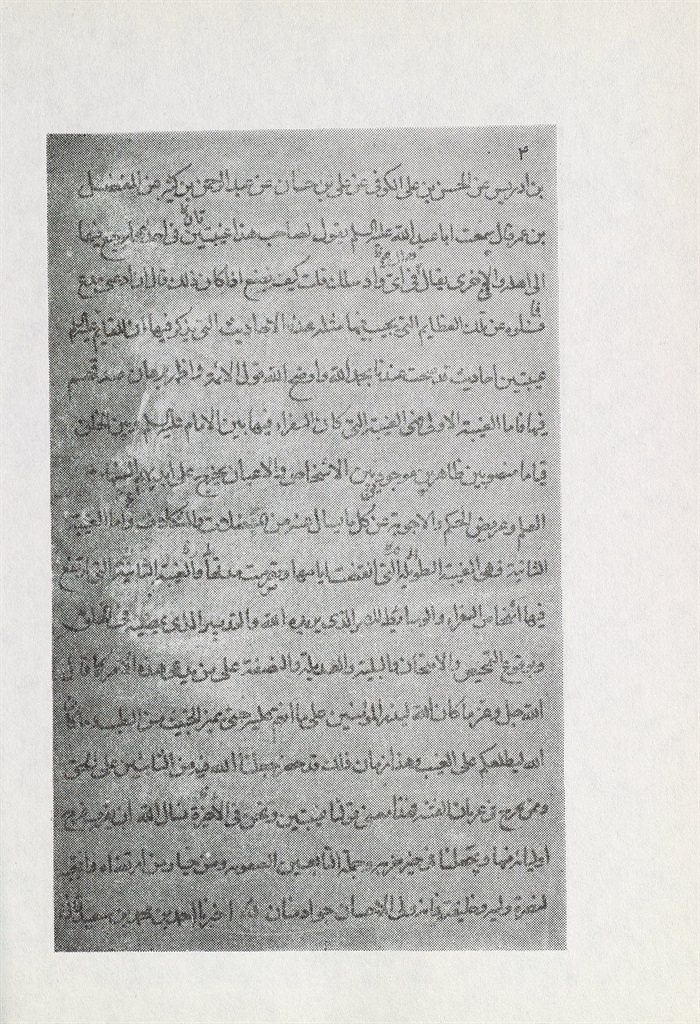 ٣
بن ادريس عن الحسن بن على الكوفى عن على بن حسان عن عبد الرحمن بن كثير عن المفضل
بن عمر قال سمعت ابا عبد الله عليه السلم يقول لصاحب هذا غيبتين فى احديهما يرجع فيها
الى اهله والاخرى يقال فى اى واد سلك قلت كيف نصنع اذا كان ذلك قال ان ادعى مدع
فسلوه عن تلك العظايم التى يجيب فيها مثله هذه الاحاديث التى يذكر فيها ان للقايم عليه السلم
غيبتين احاديث قد صحت عندنا بحمد الله واوضح الله قول الائمة واظهر برهان صدقهم
فيها فاما الغيبة الاولى فهى الغيبة التى كان السفراء فيها بين الامام عليه السلم وبين الخلق
قياما منصوبين ظاهرين موجودين الاشخاص والاعيان يخرج على ايديهم
العلم وعويص الحكم والاجوبة عن كل ما يسال عنه من المعضلات والمشكلات واما الغيبة
الثانية فهى الغيبة الطويلة التى انقضت ايامها وتصرمت مدتها والغيبة الثانية التى ارتفع
فيها اشخاص السفراء والوسايط للامر الذى يريده الله والتدبير الذى يمضيه فى الخلق
وبوقوع التمحيص والامتحان والبلية والغربلة والتصفية على من يدعى هذا الامر كما قال
الله جل وعز ما كان الله ليذر المؤمنين على ما انتم عليه حتى يميز الخبيث من الطيب وما كان
الله ليطلعكم على الغيب وهذا زمان ذلك قد حضر جعلنا الله فيه من الثابتين على الحق
وممن يخرج فى غربال الفتنة فهذا معنى قولنا غيبتين ونحن فى الاخيرة نسال الله ان يقرب فرج
اوليائه منها ويجعلنا فى حيز خيرته وجملة التابعين لصفوته ومن خيار من ارتضاه وانتجبه
لنصرة وليه وخليفته فانه ولى الاحسان جواد منان اخبرنا احمد بن محمد بن سعيد قال